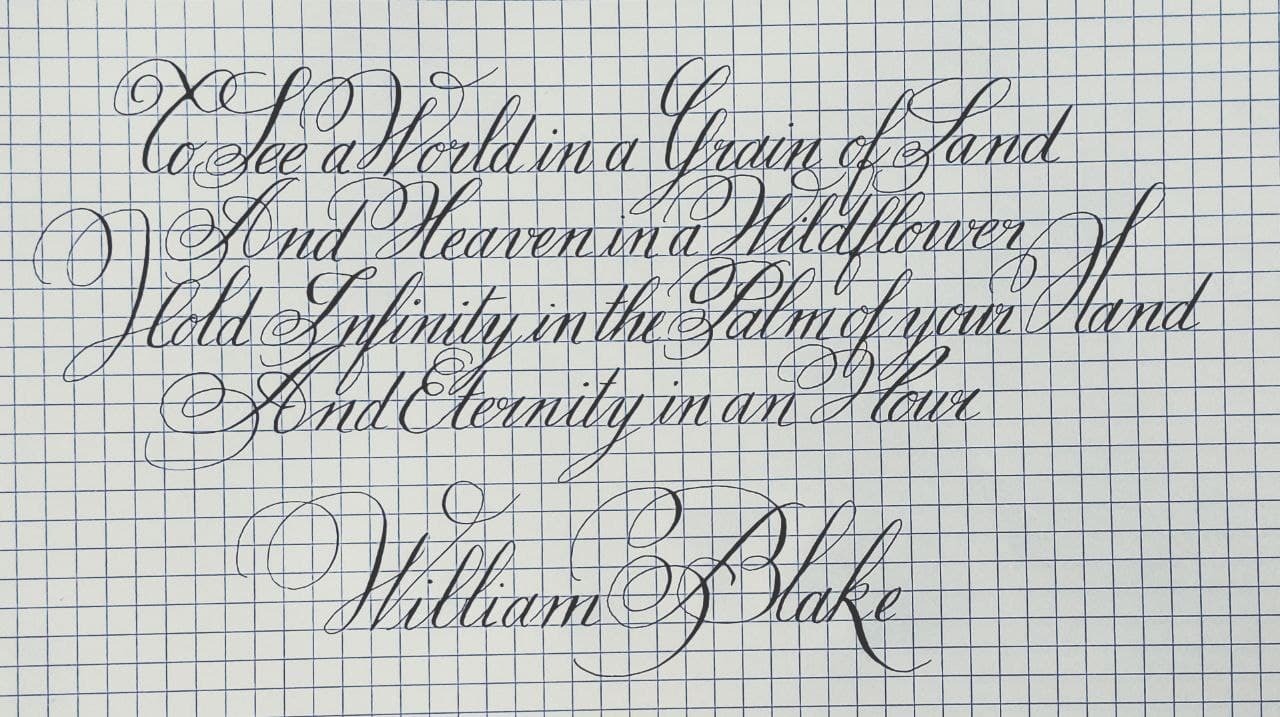 To See a World in a Grain of Sand
And Heaven in a Wildflower
Hold Infinity in the Palm of your Hand
And Eternity in an Hour
William Blake